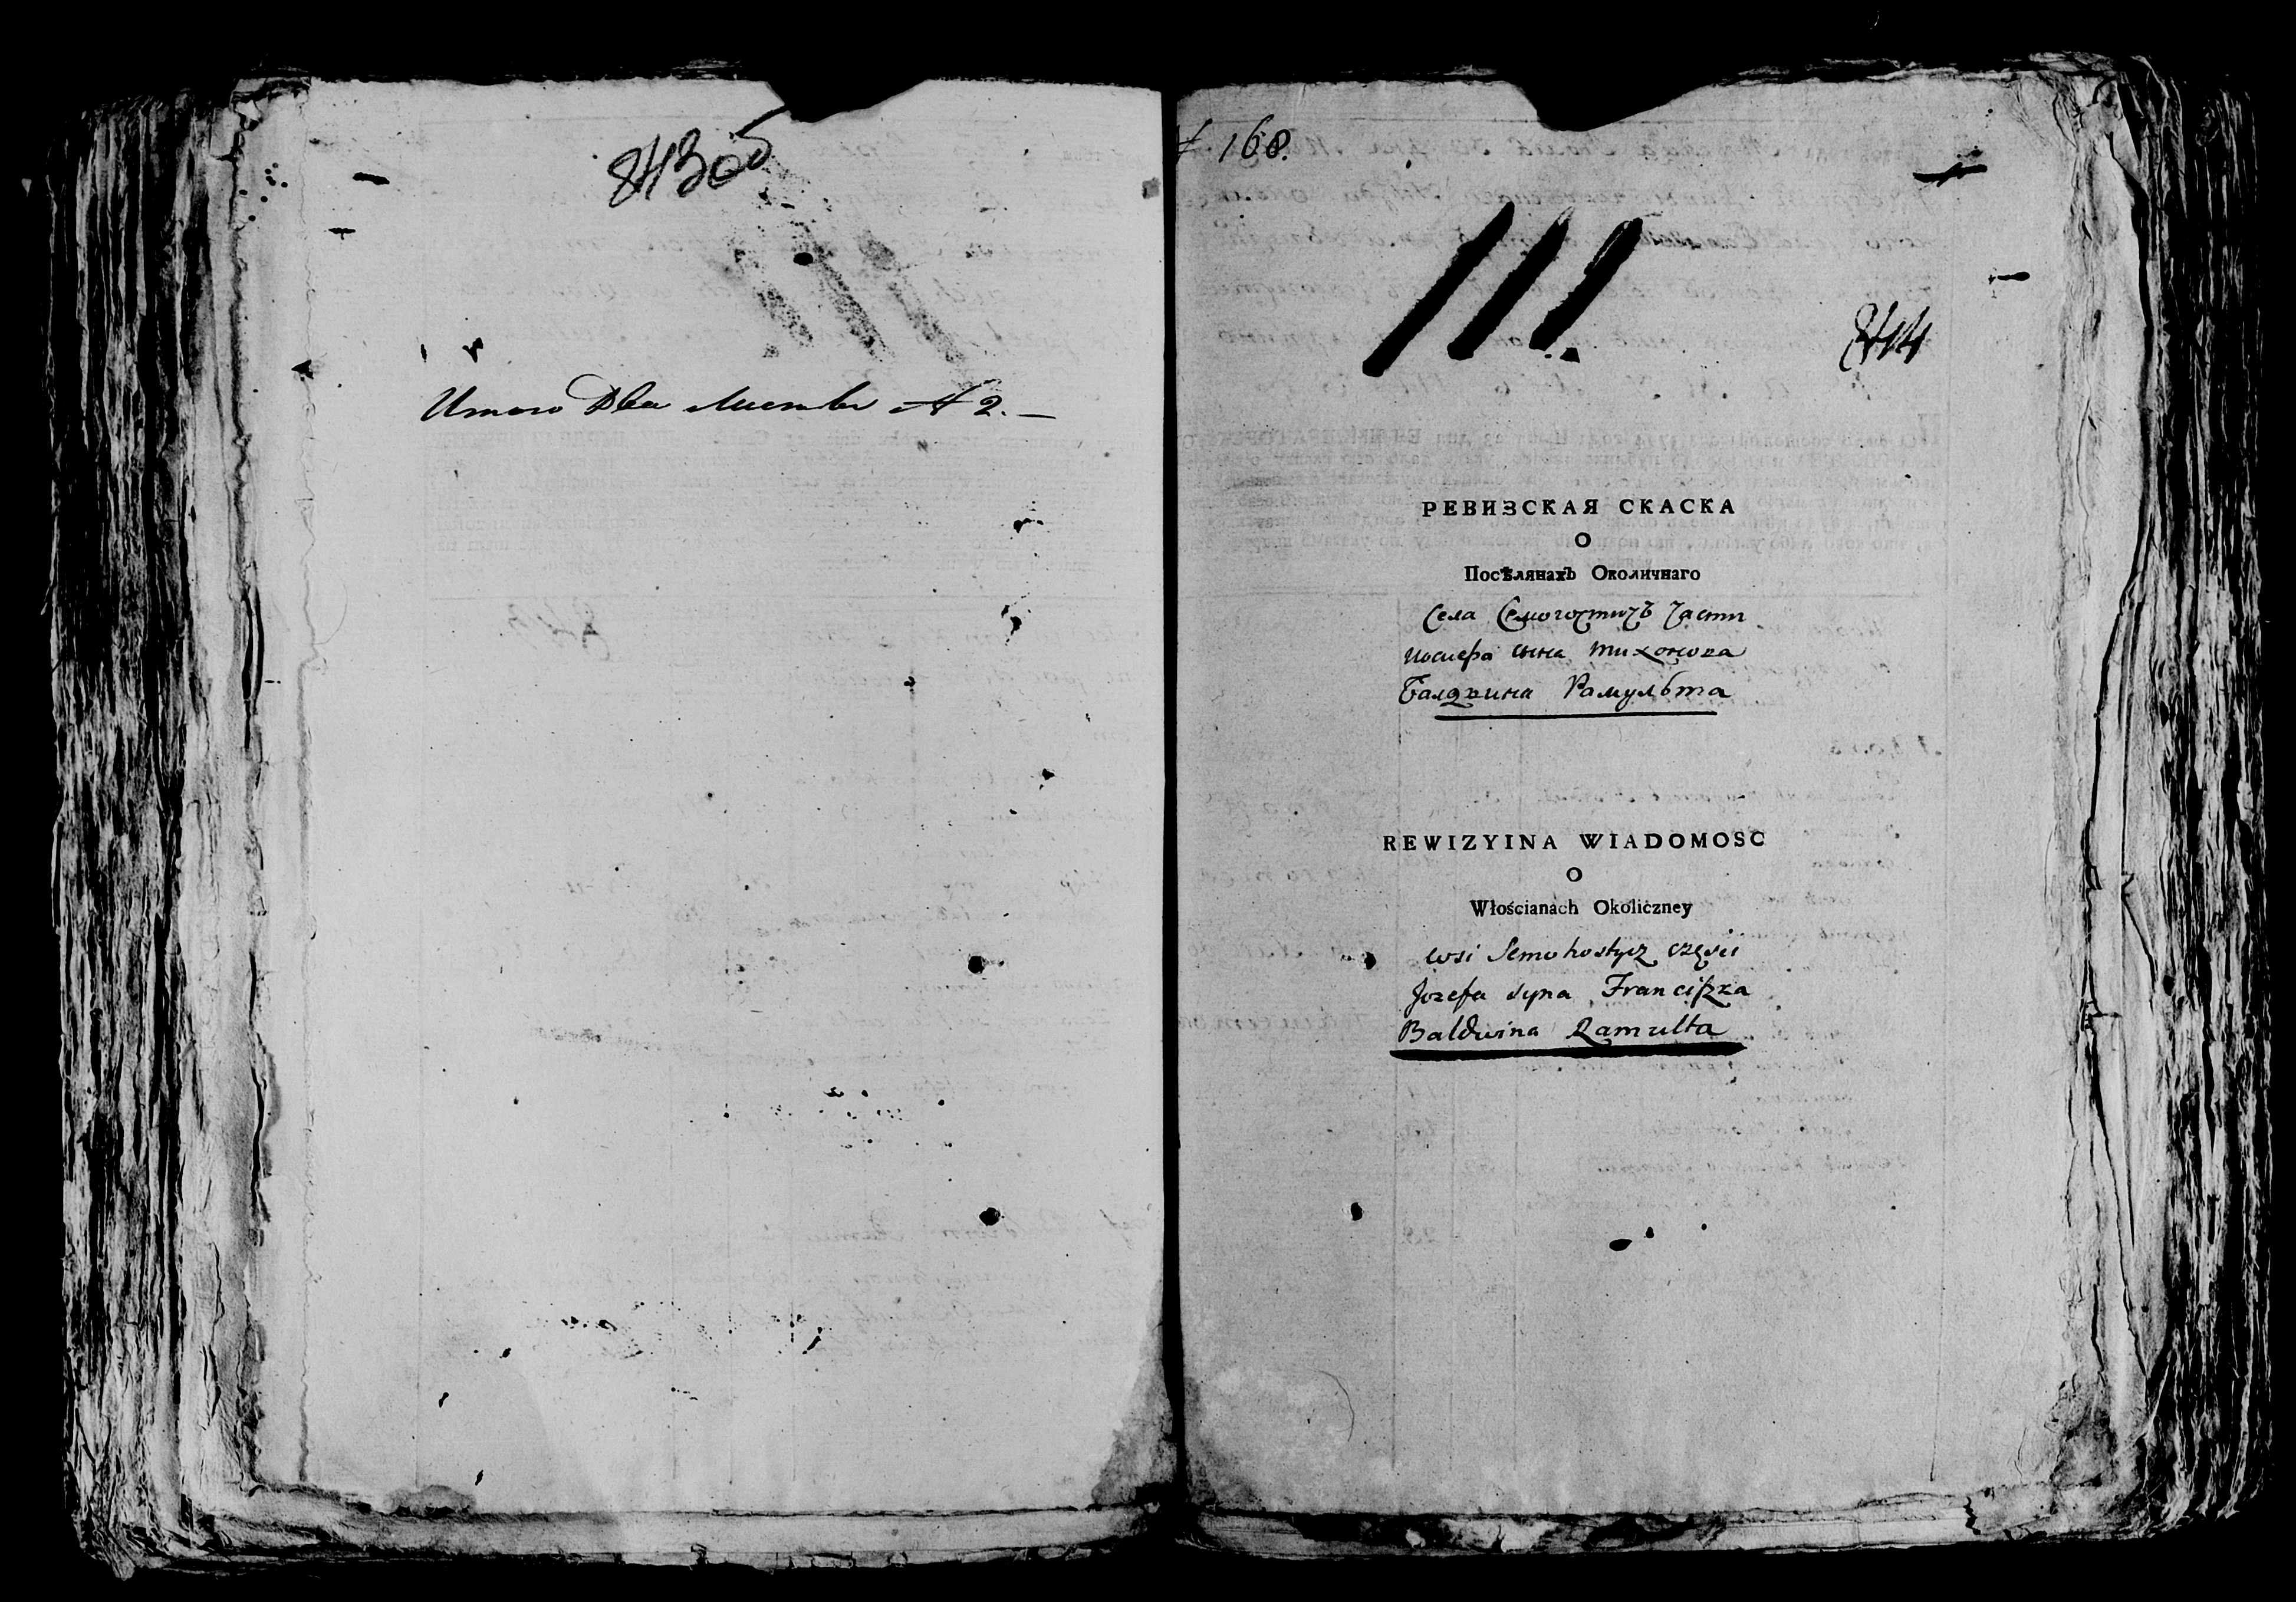 843об
Итого Два листа № 2. —
№ 168.
111.
844
РЕВИЗСКАЯ СКАСКА
О
Посѣлянахъ Околичнаго
Села Семогостичъ Части
сына
Балдвина Рамульта
REWIZYINA WIADOMOSC
O
Włościanach Okoliczney
wsi Semohostycz częsci
Jozefa syna Franciszka
Baldwina Ramulta